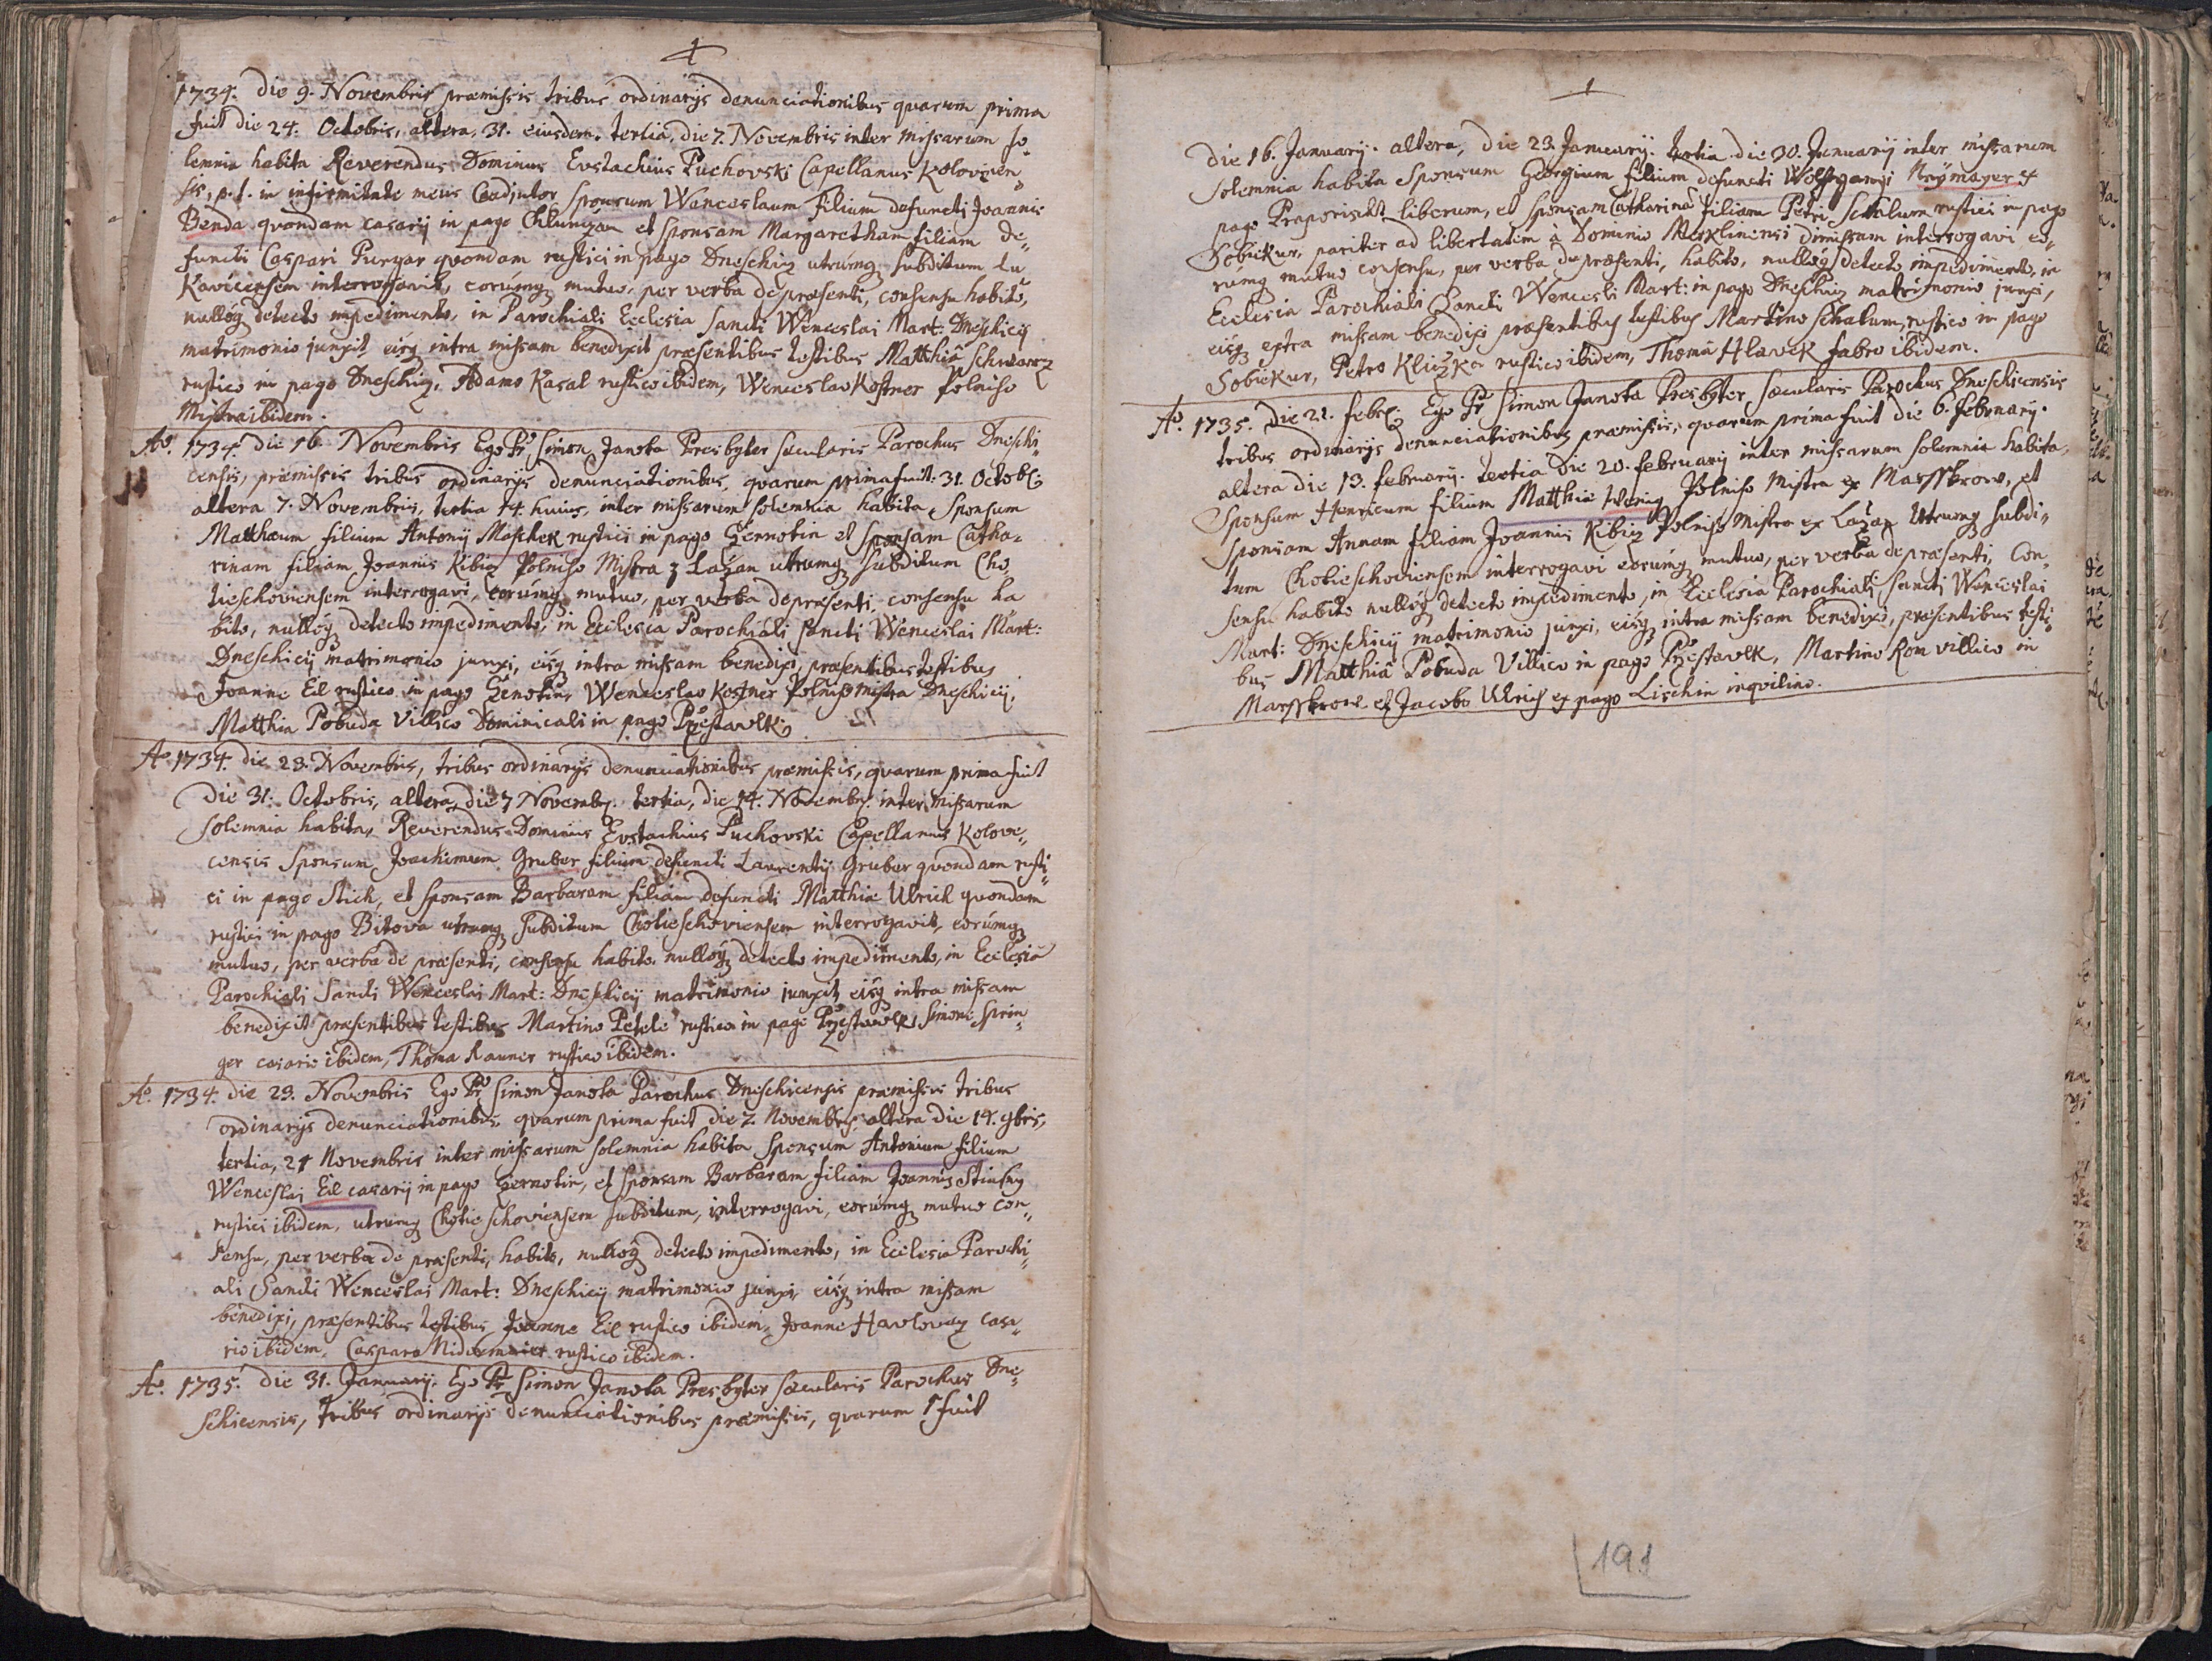 1734. die 9. Novembris præmissis tribus ordinarijs denunciationibus quarum prima
fuit die 24. Octobris, altera, 31. eiusdem. tertia, die 7. Novembris inter missarum so„
lemnia habita Reverendus Dominus Eustachius Puchovski Capellanus Kolovecen„
sis, p.t. in infirmitate meus Coadjutor Sponsum Wenceslaum filium defuncti Joannis
Benda quondam casarij in pago et Sponsam Margaretham filiam de„
functi Caspari Purgar quondam rustici in pago Dneschiz utrumq subditum Lu
Kavicensem interrogavit, eorumq mutuo, per verba de præsenti, consensu habito,
nulloq detecto impedimento, in Parochiali Ecclesia Sancti Wenceslai Mart: Dneschicij
matrimonio junxit eisq intra missam benedixit præsentibus testibus Matthiâ Schwarz
rustico in pago Dneschiz, Adamo Kasal rustico ibidem, Wenceslao Kostner Polniho
Mistra ibidem.
Aõ. 1734. die 16 Novembris Ego Pr Simon Janota Presbyter sæcularis Parochus Dneschi„
censis, præmissis tribus ordinarijs denunciationibus, quarum prima fuit: 31. Octob:
altera 7. Novembris, tertia 14. huius, inter missarum solemnia habita Sponsum
Matthæum filium Antonij Maschek rustici in pago Gernotin et Sponsam Catha=
rinam filiam Joannis Kibiz Polniho Mistra z Lazan utrumq subditum Cho„
tieschoviensem interrogavi, eorumq mutuo, per verba de præsenti, consensu ha
bito, nulloq detecto impedimento, in Ecclesia Parochiali Sancti Wenceslai Mart:
Dneschicij matrimonio junxi, eisq intra missam benedixi, præsentibus testibus
Joanne Eil rustico in pago Gernotin, Wenceslao Kostner Polniho mistra Dneschicij,
Matthia Pobuda Villico Dominicali in pago Przestawlk.
Aõ 1734. die 23. Novembris, tribus ordinarijs denunciationibus præmissis, quarum prima fuit
die 31. Octobris, altera, die 7 Novembr. tertia, die 14. Novembr. inter missarum
solemnia habita, Reverendus Dominus Eustachius Puchovski Capellanus Kolove„
censis Sponsum Joachimum Gruber filium defuncti Laurentij Gruber quondam rusti„
ci in pago Stich, et Sponsam Barbaram filiam defuncti Matthiæ Ulrich quondam
rustici in pago Bitova utrumq subditum Chotieschoviensem interrogavit, eorumq
mutuo, per verba de præsenti, consensu habito, nulloq detecto impedimento, in Ecclesia
Parochiali Sancti Wenceslai Mart: Dneschicij matrimonio junxit eisq intra missam
benedixit præsentibus testibus Martino Petele rustico in pago Przestawlk, Simone Sprin„
ger casario ibidem, Thoma Rauner rustico ibidem.
Aõ. 1734. die 23. Novembris Ego Pr Simon Janota Parochus Dneschicensis præmissis tribus
ordinarijs denunciationibus, quarum prima fuit die 7. Novembris, altera die 14. 9bris,
tertia, 21 Novembris inter missarum solemnia habita Sponsum Antonium filium
Wenceslai Eil casarij in pago Gernotin, et Sponsam Barbaram filiam Joannis
rustici ibidem, utrumq Chotieschoviensem subditum, interrogavi, eorumq mutuo con„
sensu, per verba de præsenti, habito, nulloq detecto impedimento, in Ecclesia Parochi„
ali Sancti Wenceslai Mart: Dneschicij matrimonio junxi, eisq intra missam
benedixi, præsentibus testibus, Joanne Eil rustico ibidem, Joanne Havlovaz casa„
rio ibidem, Casparo rustico ibidem.
Aõ. 1735. die 31. Januarij. Ego Pr Simon Janota Presbyter sæcularis Parochus Dne„
schicensis, tribus ordinarijs denunciationibus præmissis, quarum 1 fuit
die 16. Januarij. altera, die 23. Januarij. tertia die 30. Januarij inter missarum
solemnia habita Sponsum Georgium filium defuncti Wolfgangi Neymayer ex
pago liberum, et Sponsam Catharinã filiam Petri Schalum rustici in pago
Sobiekur, pariter ad libertatem à Dominio Merklinensi dimissam interrogavi eo„
rumq mutuo consensu, per verba de præsenti, habito, nulloq detecto impedimento, in
Ecclesia Parochiali Sancti Wencesli Mart: in pago Dneschiz matrimonio junxi,
eisq extra missam benedixi præsentibus testibus Martino Schalum, rustico in pago
Sobiekur, Petro Kliczka rustico ibidem, Thomâ Hlavek fabro ibidem.
Aõ. 1735. Die 21. febr: Ego Pr Simon Janota Presbyter sæcularis Parochus Dneschicensis
tribus ordinarijs denunciationibus præmissis, quarum prima fuit die 6. february.
altera die 13. february. tertia die 20. february inter missarum solemnia habita,
Sponsum Henricum filium Matthiæ Wenig Polniho Mistra ex Marsskrow, et
Sponsam Annam filiam Joannis Kibiz Polniho Mistra ex Lazan utrumq subdi„
tum Chotieschoviensem interrogavi eorumq mutuo, per verba de præsenti, con„
sensu habito nulloq detecto impedimento, in Ecclesia Parochiali Sancti Wenceslai
Mart: Dneschicij matrimonio junxi, eisq intra missam benedixi, præsentibus testi„
bus Matthiâ Pobuda Villico in pago Przestawlk, Martino Rom villico in
Marsskrow et Jacobo Ulrich ex pago Lischin inquilino.
191